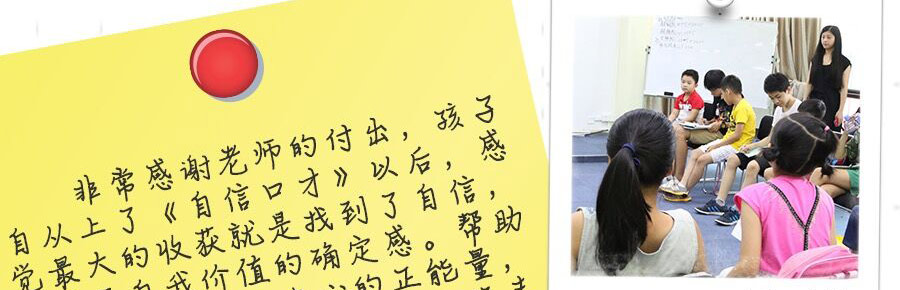 非常感谢老师的付出，孩子
自从上了《自信口才》以后，感
觉最大的收获就是找到了自信，
自我价值的确定感。帮助
的正能量，